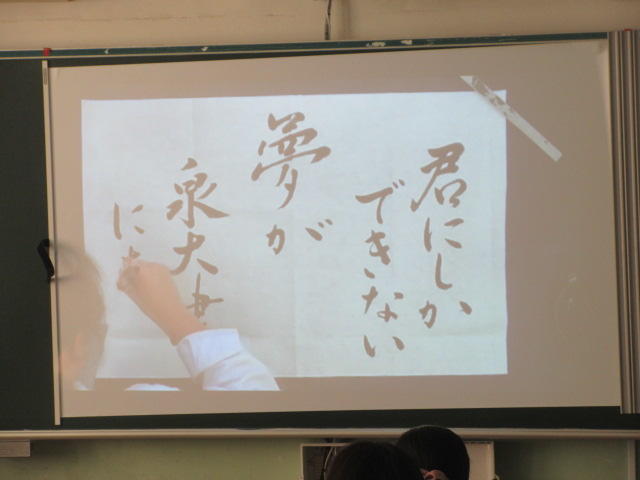 君にしか
できない
夢が
泉大
に